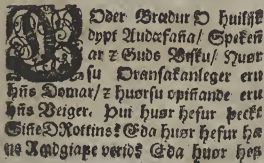 Oder Brædur O huilijk
dypt Audæfana/ Speken̄
ar z Guds Visku/ Huor
su Oransakanleger eru
hn̄s Domar/ z huorsu opitnande eru
hn̄s Veiger. Þui huor hefur þeckt
Sin̄ed DRottins? Eda huor hefur ha
ns Radgiafe verid? Eda huor hef